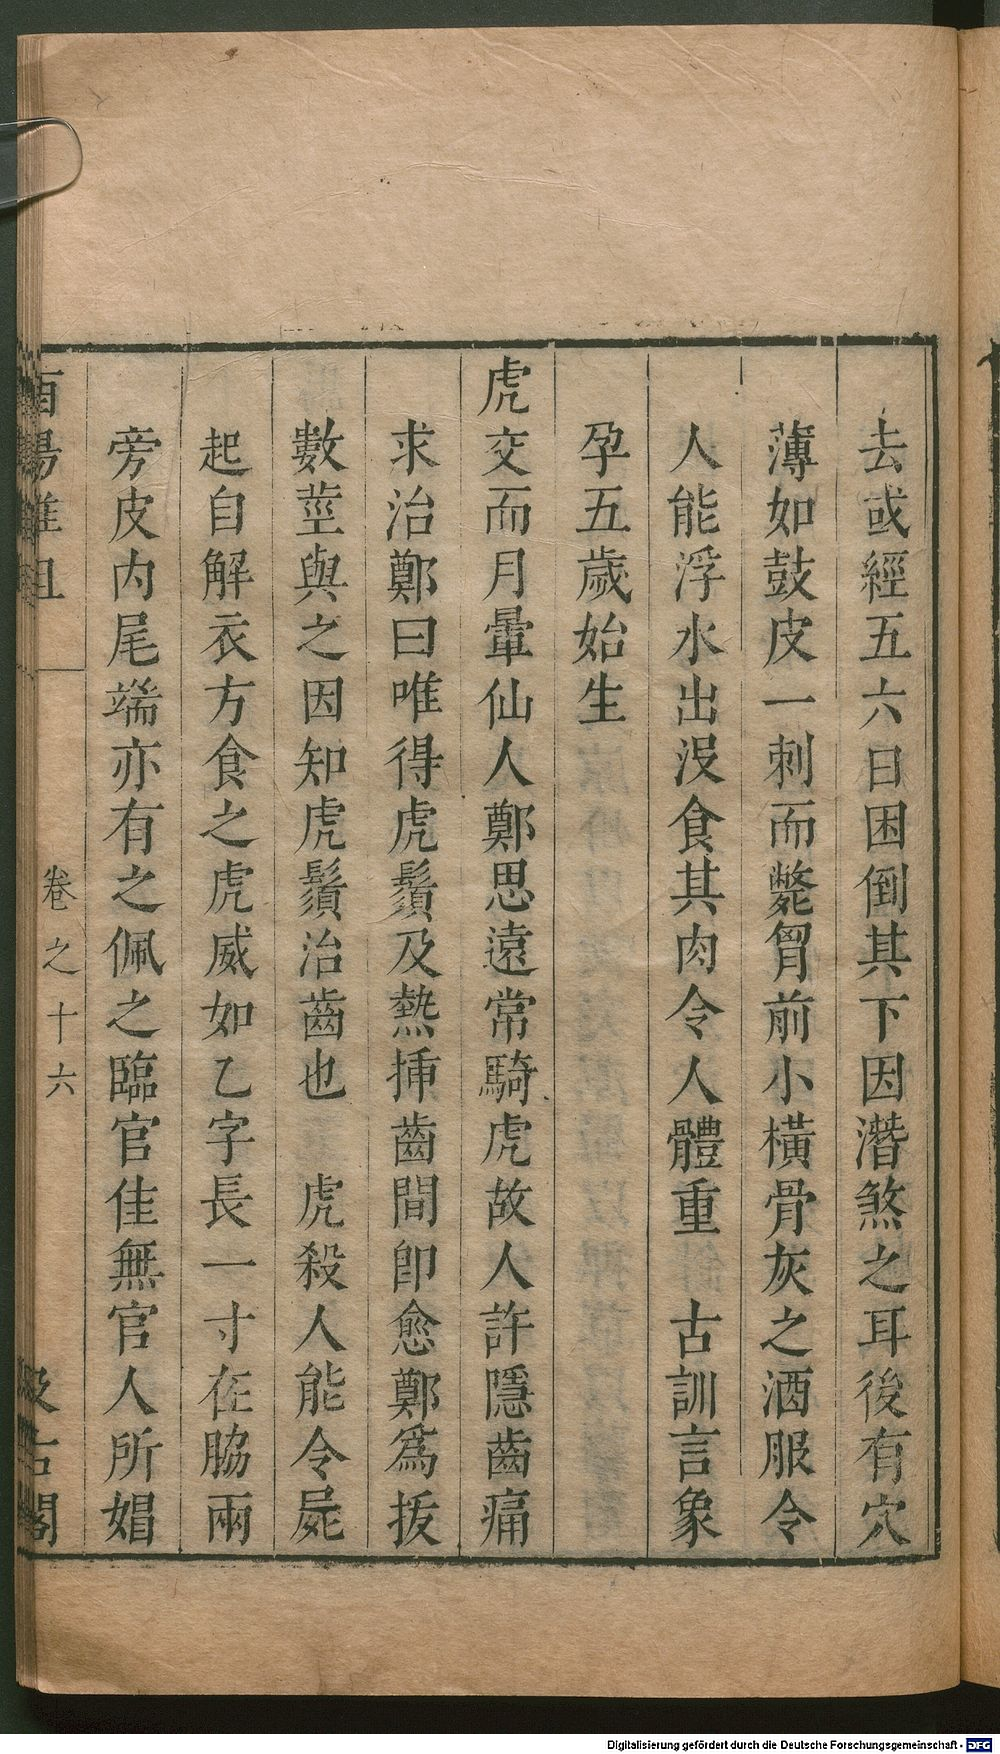 去或經五六日困倒其下因潛煞之耳後有穴
薄如鼓皮一刺而斃胷前小橫骨灰之酒服令
人能浮水出没食其肉令人體重　古訓言象
孕五歲始生
虎交而月暈仙人鄭思遠常騎虎故人許隱齒痛
求治鄭曰唯得虎鬚及熱揷齒間卽愈鄭爲拔
數莖與之因知虎鬚治齒也　虎殺人能令屍
起自解衣方食之虎威如乙字長一寸在脇兩
旁皮内尾端亦有之佩之臨官佳無官人所媢
酉陽雜俎
卷之十六
汲古閣
Digitalisierung gefördert durch die Deutsche Forschungsgemeinschaft - DFG